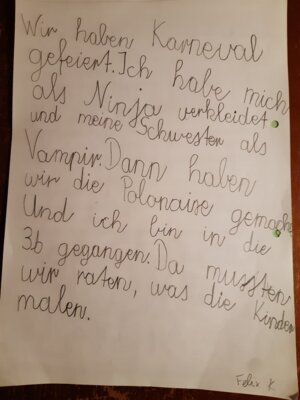 Wir haben Karneval
gefeiert. Ich habe mich
als Ninja verkleidet
und meine Schwester als
Vampir. Dann haben
wir die Polonaise gemacht
Und ich bin in die
3b gegangen. Da mussten
wir raten, was die Kinder
malen.
Felix K